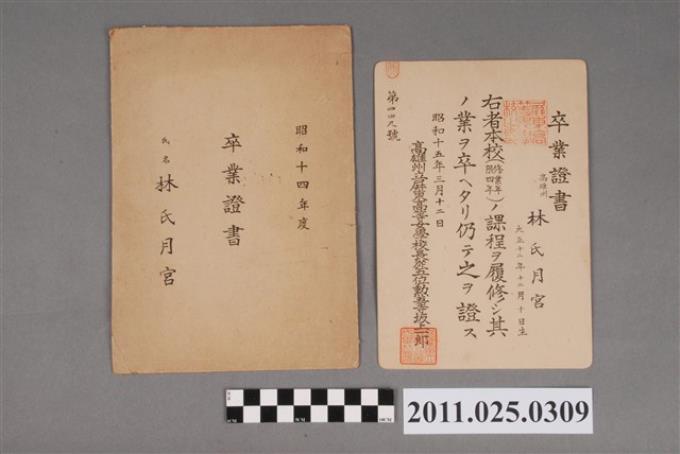 昭和十四年度
卒業證書
氏名 林氏月宮
卒業證書
高雄州
林氏月宮
大正十二年十二月十日生
右者本校(修業年限四年)ノ課程ヲ履修シ其
ノ業ヲ卒ヘタリ仍テ之ヲ證ス
昭和十五年三月十二日
高雄州立屏東高等女學校長從五位勳等坂上一郎
第四四九號
2011.025.0309